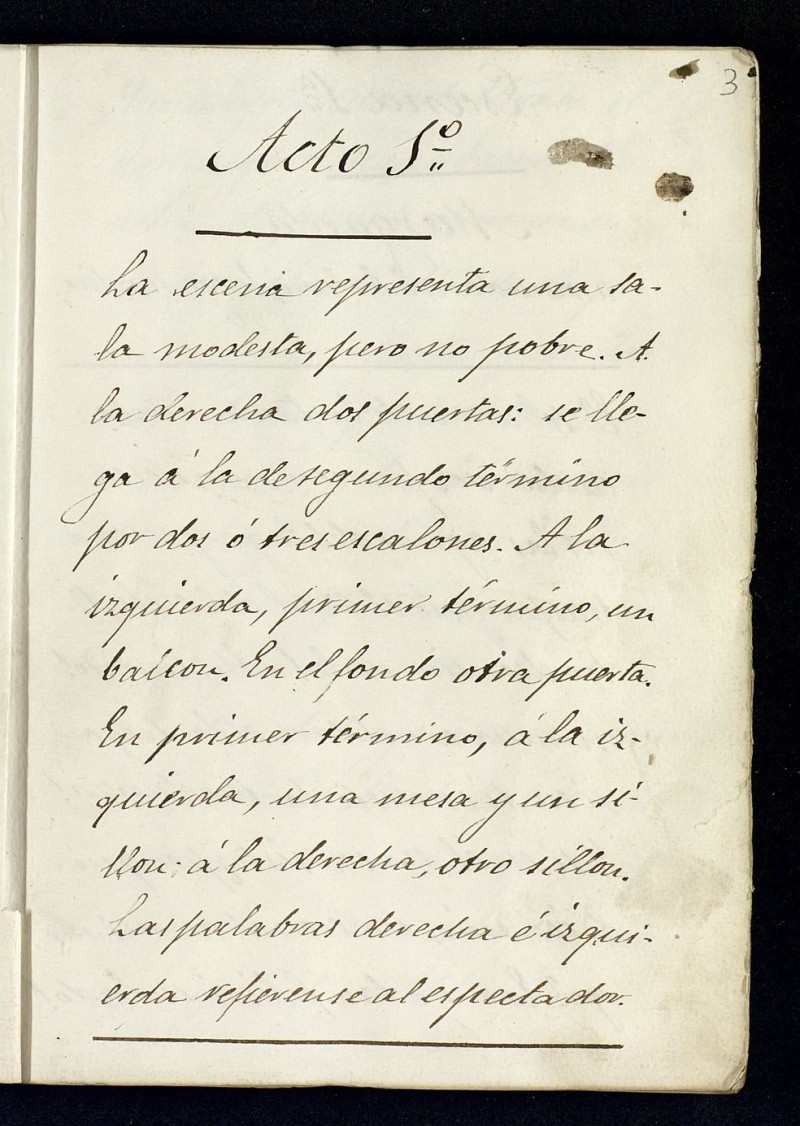 3
Acto 1º
La escena representa una sa-
la modesta, pero no pobre. A
la derecha dos puertas: se lle-
ga á la de segundo término
por dos ó tres escalones. A la
izquierda, primer término, un
balcon. En el fondo otra puerta.
En primer término, á la iz-
quierda, una mesa y un si-
llon; á la derecha, otro sillon.
Las palabras derecha é izqui-
erda refierense al espectador.